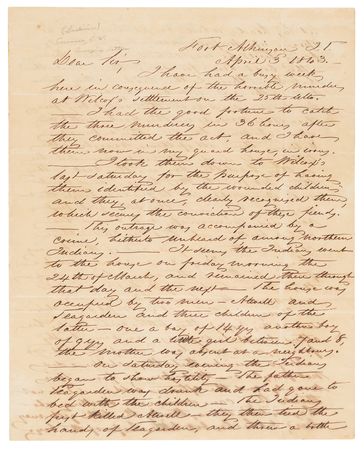 Fort Atkinson I.T.
April 3 1843.
Dear Sir,
I have had a busy week
here in consequence of the horrible murders
at Wilcox's settlement on the 25th ulto.
— I had the good fortune to catch
the three murderers in 36 hours after
they committed the act, and I have
them now in my guard house, in irons.
— I took them down to Wilcox's
last Saturday for the purpose of having
them identified by the wounded children
and they, at once, clearly recognised them
which secures the conviction of these fiends.
— This outrage was accompanied by a
crime, hitherto unheard of among Northern
Indians. It seems the Indians went
to the house on friday morning the
24th of March, and remained there through
that day and the next — The house was
occupied by two men — Atwell and
Teagarden and three children of the
latter — one a boy of 14 yrs another boy
of 9 yrs and a little girl between 7 and 8,
the mother was absent at a neighbours.
— On Saturday evening the Indians
began to show hostility — The father
Teagarden was drunk and had gone to
bed with the children — The Indians
first killed Atwell — they then tied the
hands of Teagarden, and threw a